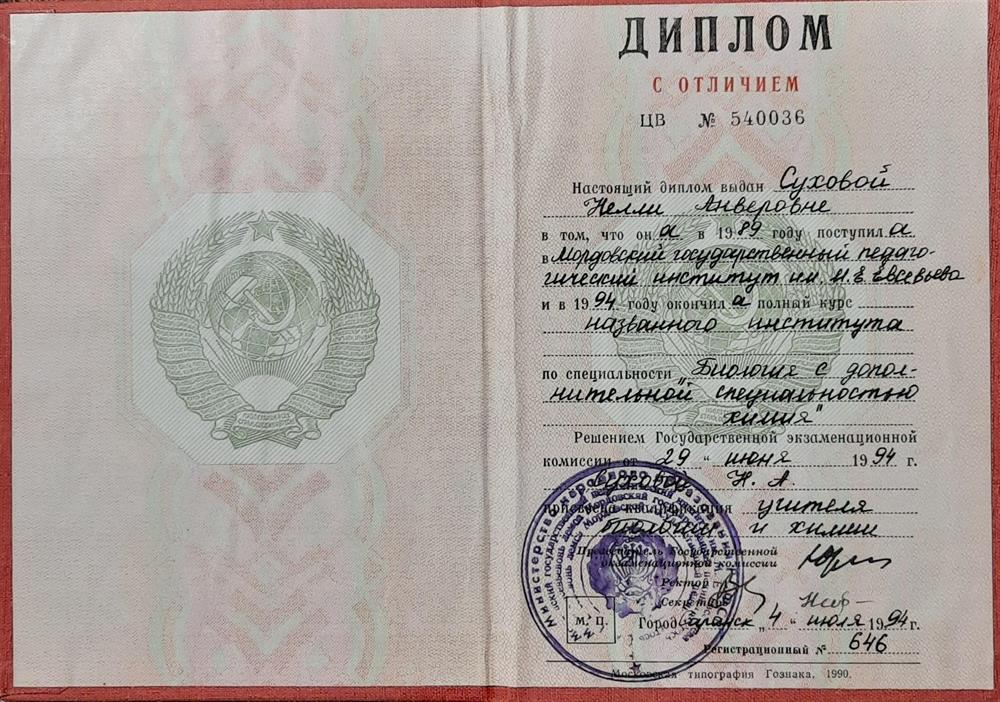 ДИПЛОМ
С ОТЛИЧИЕМ
ЦВ № 540036
Настоящий диплом выдан Суховой
Нелли Анверовне
в том, что он а в 1989 году поступил а
в Мордовский государственный педаго-
гический институт им. М. Е. Евсевьева
и в 1994 году окончил а полный курс
названного института
по специальности „Биология с допол-
нительной специальностью
химия"
Решением Государственной экзаменационной
комиссии от „29 " июня 1994 г.
Суховой Н. А.
присвоена квалификация учителя
биологии и химии
Председатель Государственной
экзаменационной комиссии
Ректор
Секретарь
М. П.
Город Саранск „ 4 " июля 1994 г.
Регистрационный № 646
Московская типография Гознака, 1990.